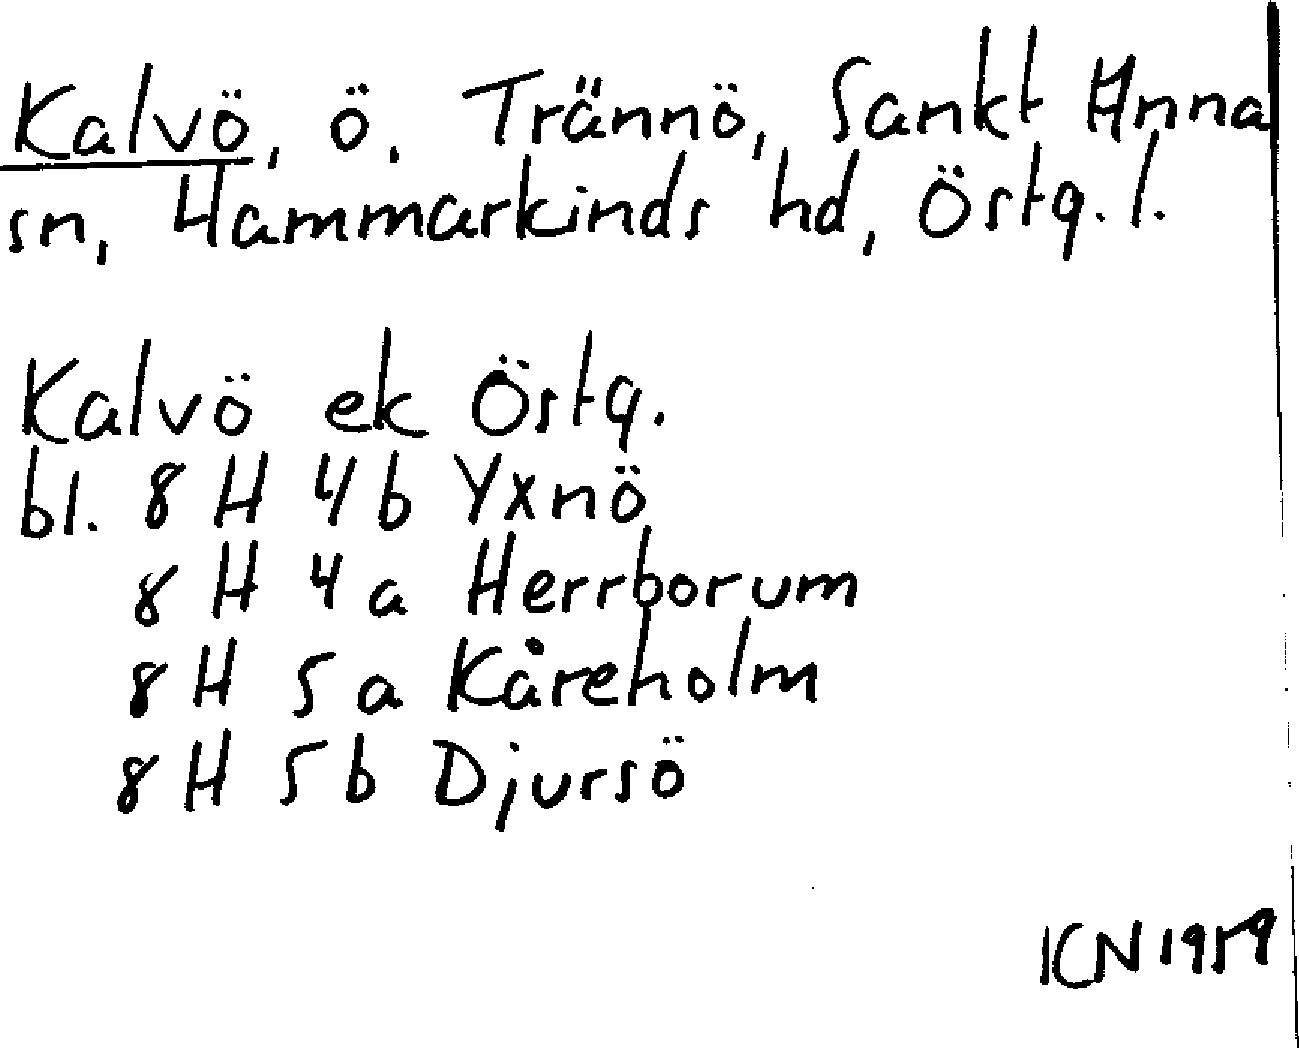 Kalvö, ö. Trännö, Sankt Anna
sn, Hammarkinds hd, Östg. l.
Kalvö ek Östg.
bl. 8 H 4 b Yxnö
8 H 4 a Herrborum
8 H 5 a Kåreholm
8 H 5 b Djursö
ICN 1959